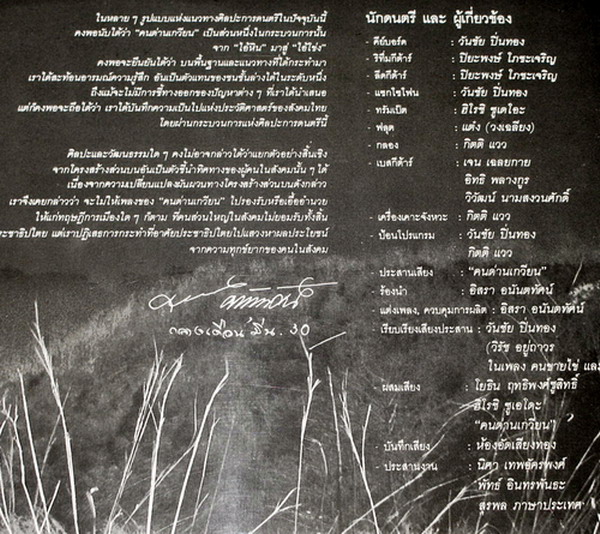 ในหลาย ๆ รูปแบบแห่งแนวทางศิลปะการดนตรีในปัจจุบันนี้
คงพอนับได้ว่า "คนด่านเกวียน" เป็นส่วนหนึ่งในกระบวนการนั้น
จาก "ไอ้หิน" มาสู่ "ไอ้โข่ง"
คงพอจะยืนยันได้ว่า บนพื้นฐานและแนวทางที่ได้กระทำมา
เราได้สะท้อนอารมณ์ความรู้สึก อันเป็นตัวแทนของชนชั้นล่างได้ในระดับหนึ่ง
ถึงแม้จะไม่มีการชี้ทางออกของปัญหาต่าง ๆ ที่เราได้นำเสนอ
แต่ก็คงพอจะถือได้ว่า เราได้บันทึกความเป็นไปแห่งประวัติศาสตร์ของสังคมไทย
โดยผ่านกระบวนการแห่งศิลปการดนตรีนี้
ศิลปะและวัฒนธรรมใด ๆ คงไม่อาจกล่าวได้ว่าแยกตัวอย่างสิ้นเชิง
จากโครงสร้างส่วนบนอันเป็นตัวชี้นำทิศทางของผู้คนในสังคมนั้น ๆ ได้
เนื่องจากความเปลี่ยนแปลงผันผวนทางโครงสร้างส่วนบนดังกล่าว
เราจึงเคยกล่าวว่า จะไม่ให้เพลงของ "คนด่านเกวียน" ไปรองรับหรือเอื้ออำนวย
ให้แก่ทฤษฎีการเมืองใด ๆ ก็ตาม ที่คนส่วนใหญ่ในสังคมไม่ยอมรับทั้งสิ้น
ระชาธิปไตย แต่เราปฏิเสธการกระทำที่อาศัยประชาธิปไตยไปแสวงหาผลประโยชน์
จากความทุกข์ยากของคนในสังคม
กลางเดือน มีน. 30
นักดนตรี และ ผู้เกี่ยวข้อง
- คีย์บอร์ด : วันชัย ปิ่นทอง
- ริทึ่มกีต้าร์ : ปิยะพงษ์ โภชะเจริญ
- ลีดกีต้าร์ : ปิยะพงษ์ โภชะเจริญ
- แซกโซโฟน : วันชัย ปิ่นทอง
- ทรัมเป็ต : ฮิโรชิ ซูเดโอะ
- ฟลุต : แต๋ง (วงเฉลียง)
- กลอง : กิตติ แวว
- เบสกีต้าร์ : เจน เฉลยกาย
อิทธิ พลางกูร
วิวัฒน์ นามสงวนศักดิ์
- เครื่องเคาะจังหวะ : กิตติ แวว
- ป้อนโปรแกรม : วันชัย ปิ่นทอง
กิตติ แวว
- ประสานเสียง : "คนด่านเกวียน"
- ร้องนำ : อิสรา อนันตทัศน์
- แต่งเพลง, ควบคุมการผลิต : อิสรา อนันตทัศน์
- เรียบเรียงเสียงประสาน : วันชัย ปิ่นทอง
(วิรัช อยู่ถาวร
ในเพลง คนขายไข่ และ
- ผสมเสียง : โยธิน ฤทธิพงศ์ชูสิทธิ์
ฮิโรชิ ซูเอโดะ
"คนด่านเกวียน"
- บันทึกเสียง : ห้องอัดเสียงทอง
- ประสานงาน : นิศา เทพอัครพงศ์
พัทธ์ อินทรพันธะ
สุรพล ภาษาประเทศ